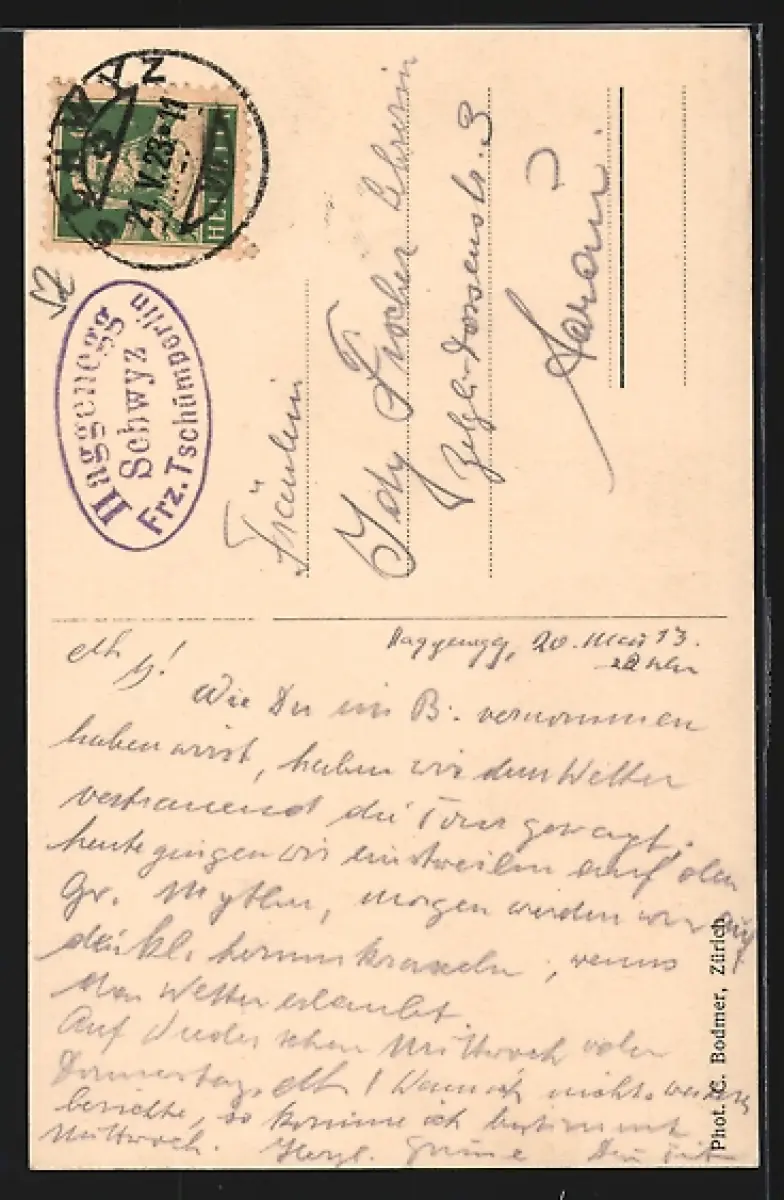 SCHWYZ
21.V.23-11
HELVETIA
Haggenegg
Schwyz
Frz. Tschümperlin
Fräulein
Fischer Lehrerin
Aarau.
Haggenegg, 20. Mai 23.
Wie Du in B. vernommen
haben wirst, haben wir dem Wetter
vertrauend die Tour gewagt.
Heute gingen wir einstweilen auf den
Gr. Mythen, morgen werden wir auf
d. kl. herumkraxeln, wenns
das Wetter erlaubt.
Auf Wiedersehen Mittwoch oder
Donnerstag, Wenn ich nichts weiteres
berichte, so komme ich bestimmt
Mittwoch. Herzl. Grüsse Dein
Phot. C. Bodmer, Zürich